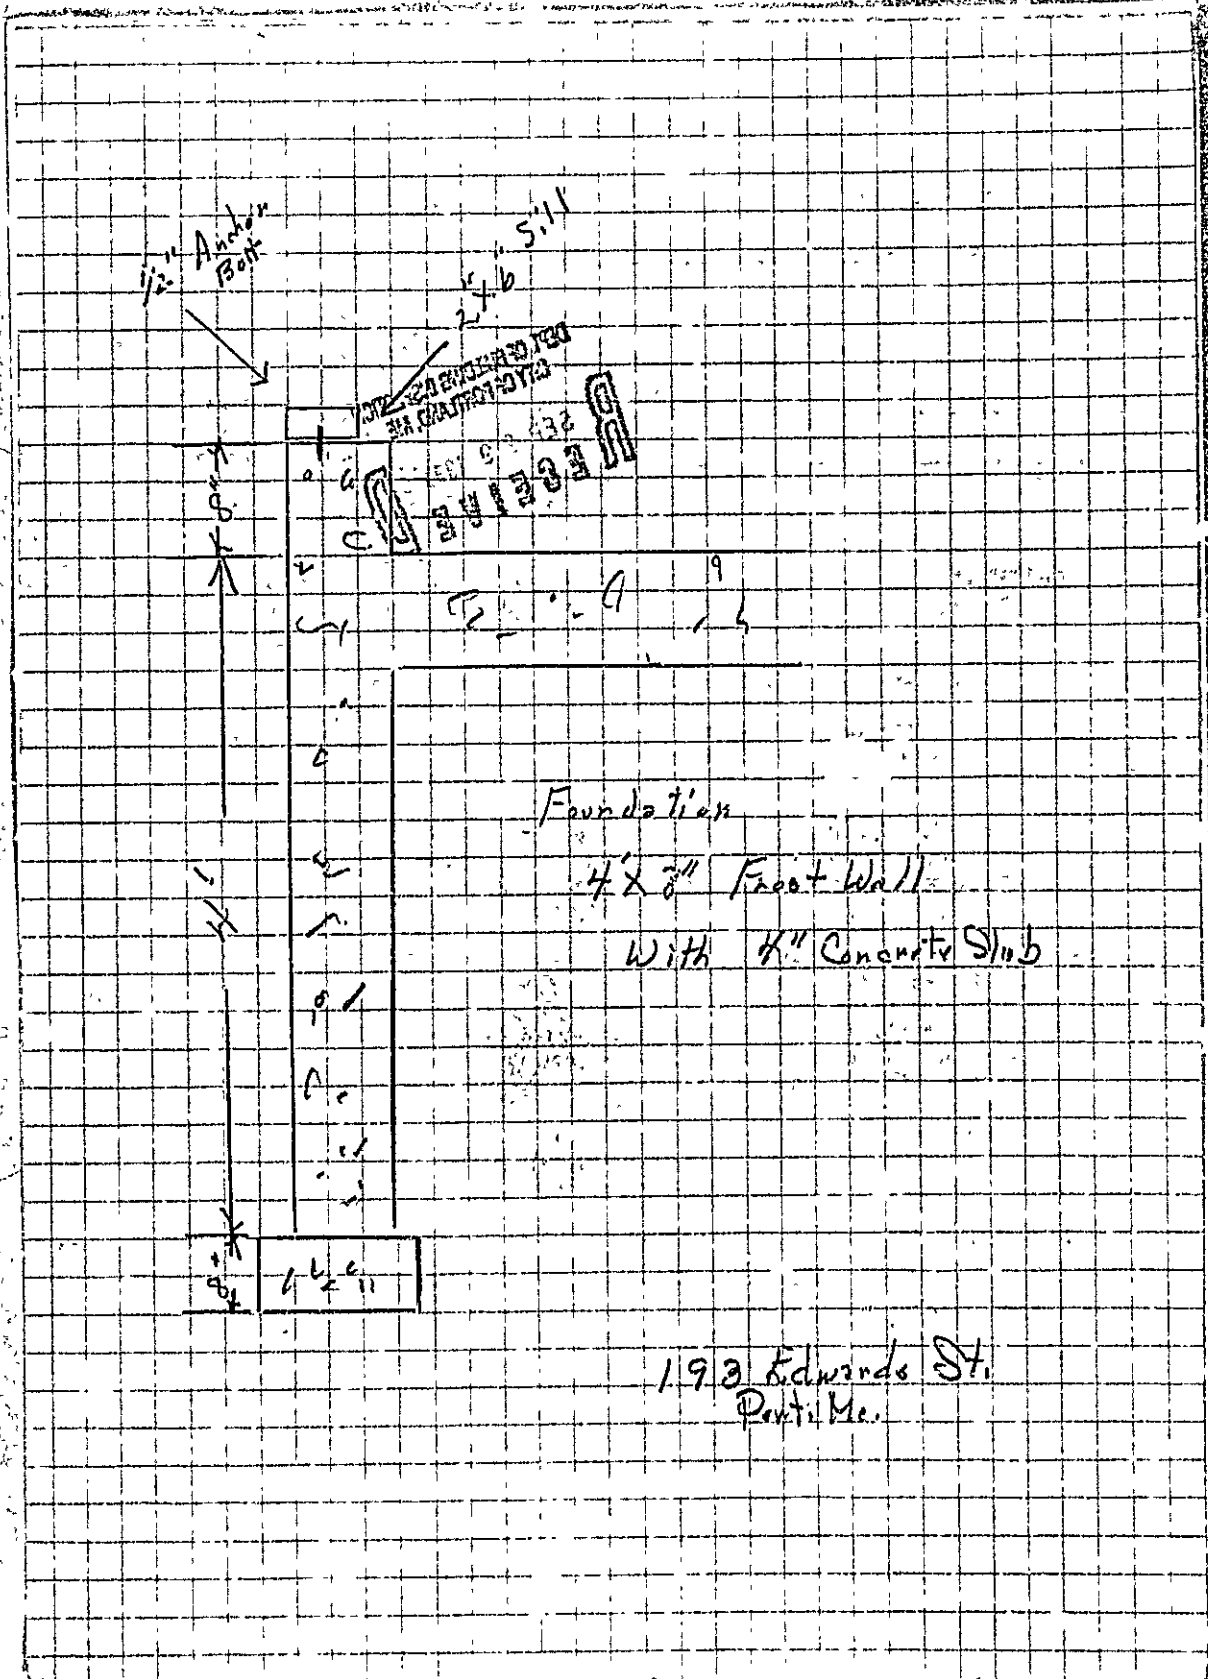 1/2" Anchor
Bolt
2"x6" Sill
DEPT. OF BUILDING INSPECTIONS
CITY OF PORTLAND, ME
SEP
RECEIVED
8"
4'
8"
Foundation
4'x 8" Frost Wall
With 4" Concrete Slab
193 Edwards St.
Port. Me.